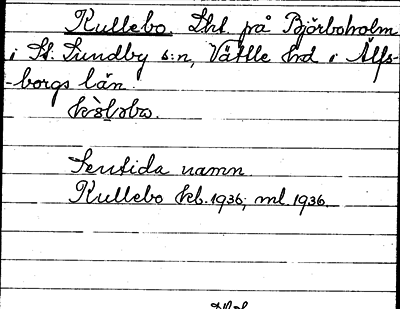 Kullebo. Lht. på Björboholm
i St. Lundby s:n, Vättle hd i Älfs-
-borgs län.
Sentida namn
Kullebo kb. 1936, ml. 1936.